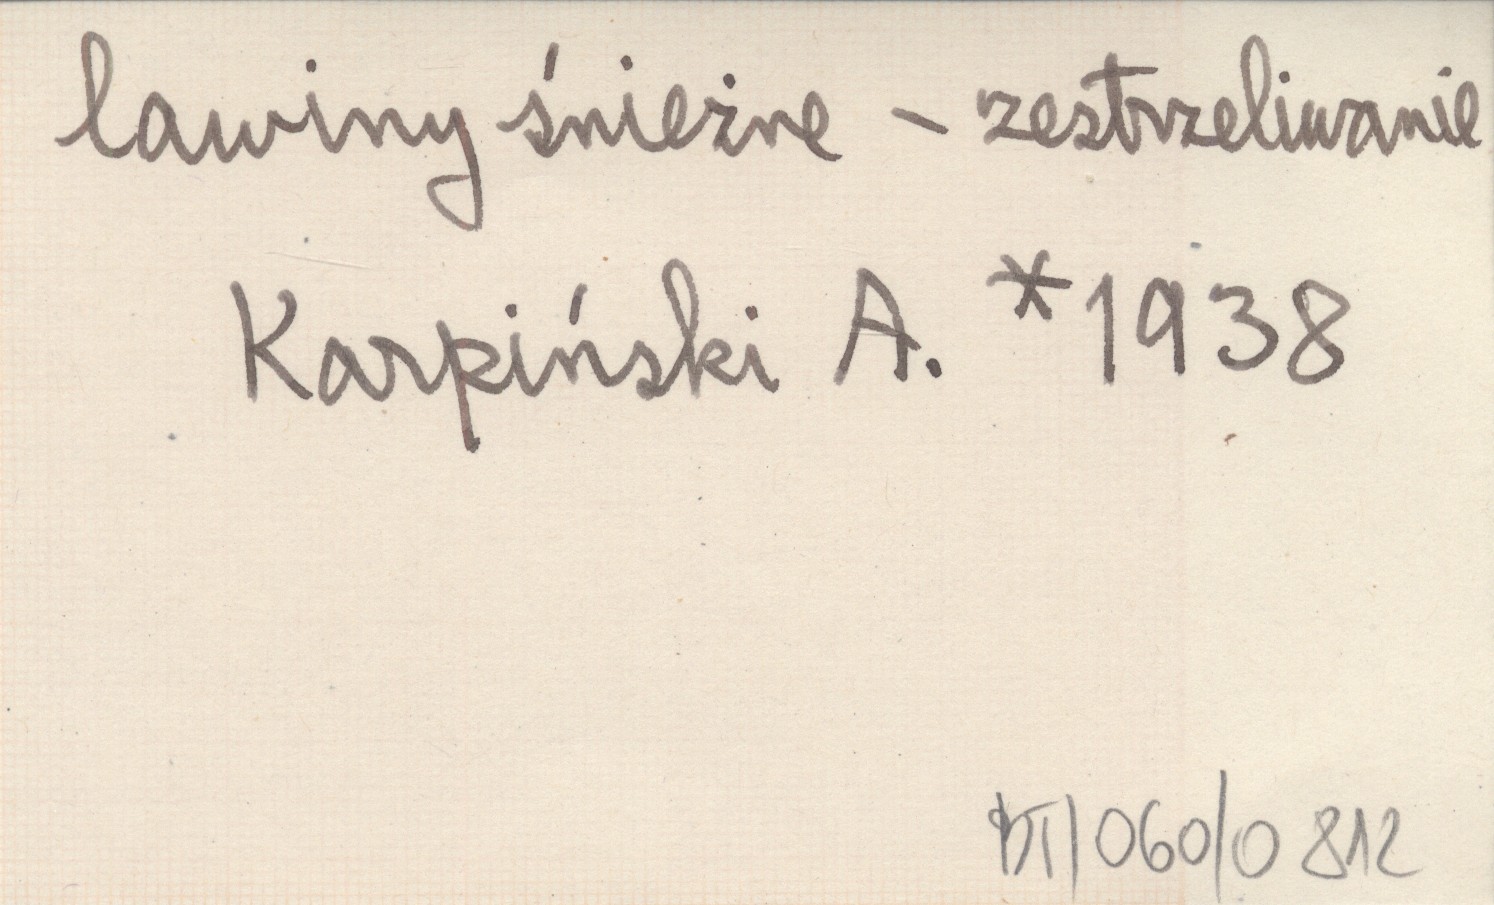 lawiny śnieżne - zestrzeliwanie
Karpiński A. *1938
060/0 812